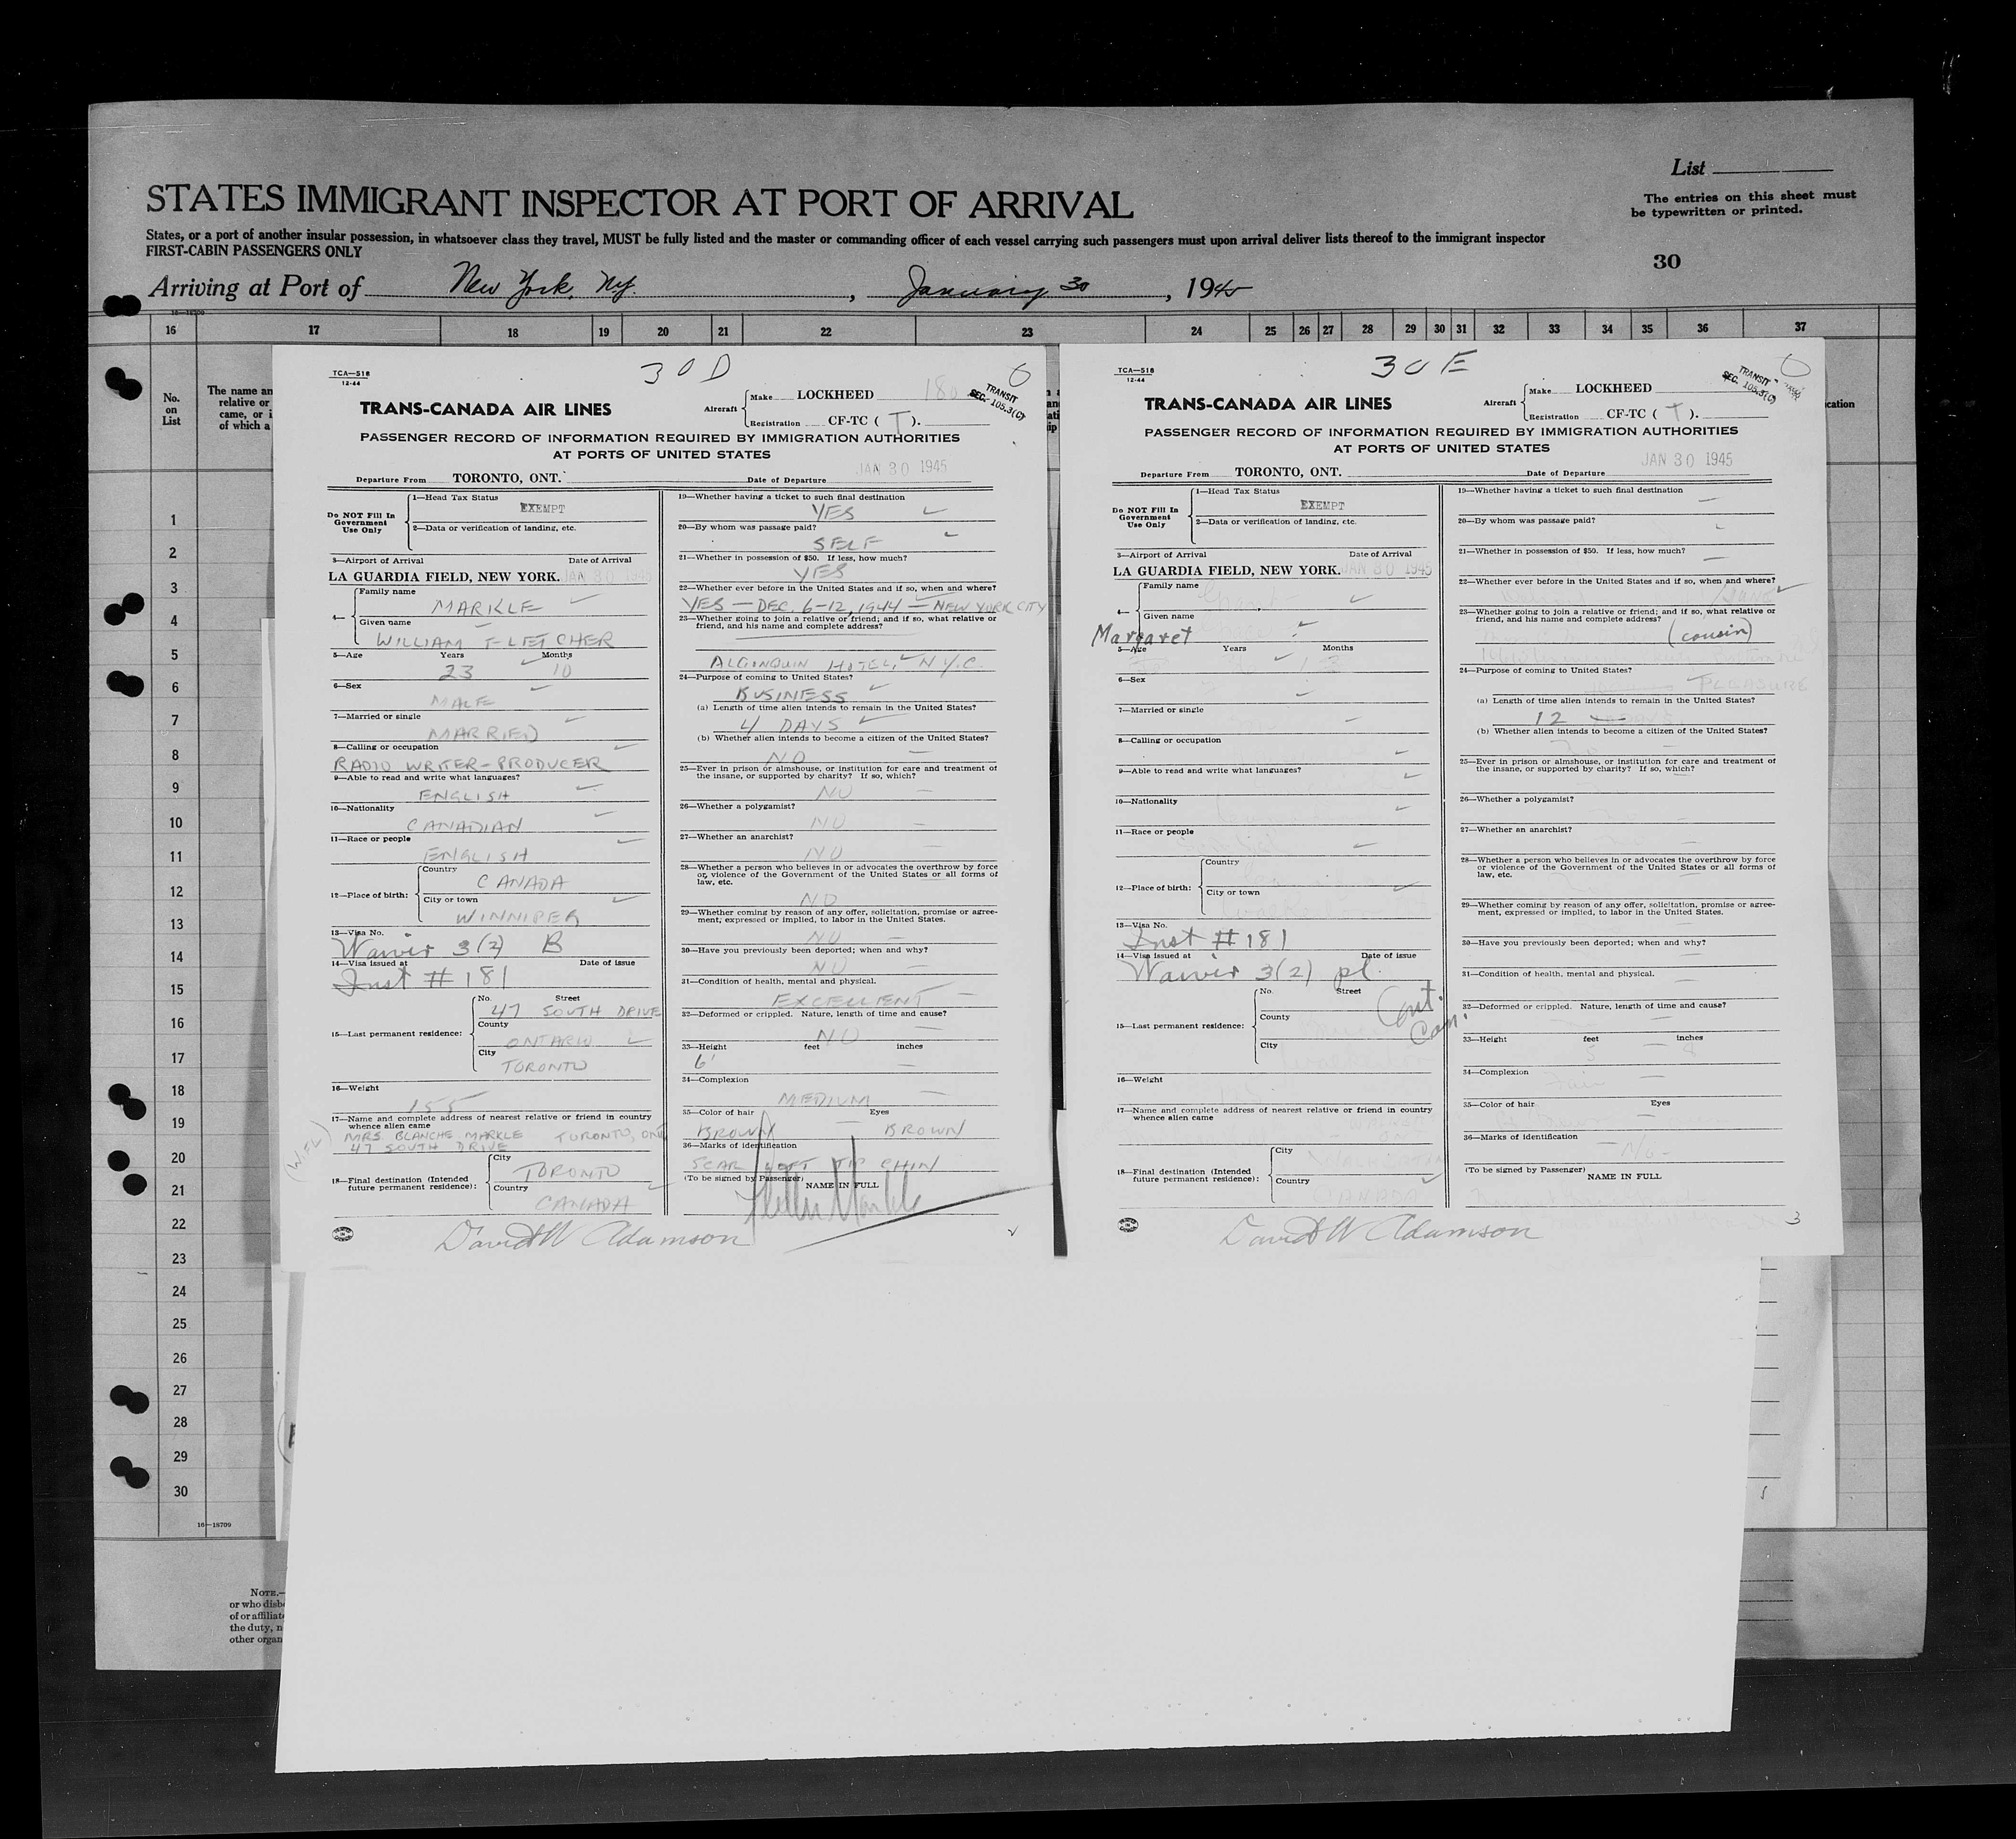 List
The entries on this sheet must
be typewritten or printed.
STATES IMMIGRANT INSPECTOR AT PORT OF ARRIVAL
States, or a port of another insular possession, in whatsoever class they travel, MUST be fully listed and the master or commanding officer of each vessel carrying such passengers must upon arrival deliver lists thereof to the immigrant inspector
FIRST-CABIN PASSENGERS ONLY
30
Arriving at Port of New York, Ny. , January 30 , 1945
16—18709
16 17 18 19 20 21 22 23 24 25 26 27 28 29 30 31 32 33 34 35 36 37
No.
on
List
The name an
relative or
came, or i
of which a
cation
1
2
3
4
5
6
7
8
9
10
11
12
13
14
15
16
17
18
19
20
21
22
23
24
25
26
27
28
29
30
16—18709
NOTE.—
or who disb
of or affiliat
the duty, n
other organ
30 D
TCA—518
12-44
TRANS-CANADA AIR LINES
Aircraft
Make LOCKHEED
Registration CF-TC ( T ).
TRANSIT
SEC. 105.3(C)
PASSENGER RECORD OF INFORMATION REQUIRED BY IMMIGRATION AUTHORITIES
AT PORTS OF UNITED STATES
JAN 30 1945
Departure From TORONTO, ONT. Date of Departure
Do NOT Fill In
Government
Use Only
1—Head Tax Status
EXEMPT
2—Data or verification of landing, etc.
3—Airport of Arrival Date of Arrival
LA GUARDIA FIELD, NEW YORK. JAN 30 1945
4—
Family name
MARKLE
Given name
WILLIAM FLETCHER
5—Age Years Months
23 10
6—Sex
MALE
7—Married or single
MARRIED
8—Calling or occupation
RADIO WRITER-PRODUCER
9—Able to read and write what languages?
ENGLISH
10—Nationality
CANADIAN
11—Race or people
ENGLISH
12—Place of birth:
Country
CANADA
City or town
WINNIPEG
13—Visa No.
Waivir 3(2) B
14—Visa issued at Date of issue
Inst # 181
15—Last permanent residence:
No. Street
47 SOUTH DRIVE
County
ONTARIO
City
TORONTO
16—Weight
155
17—Name and complete address of nearest relative or friend in country
whence alien came
MRS. BLANCHE MARKLE TORONTO, ONT
47 SOUTH DRIVE
18—Final destination (Intended
future permanent residence):
City
TORONTO
Country
CANADA
19—Whether having a ticket to such final destination
YES
20—By whom was passage paid?
SELF
21—Whether in possession of $50. If less, how much?
YES
22—Whether ever before in the United States and if so, when and where?
YES — DEC. 6-12, 1944 — NEW YORK CITY
23—Whether going to join a relative or friend; and if so, what relative or
friend, and his name and complete address?
ALGONQUIN HOTEL, N.Y.C.
24—Purpose of coming to United States?
BUSINESS
(a) Length of time alien intends to remain in the United States?
4 DAYS
(b) Whether alien intends to become a citizen of the United States?
NO
25—Ever in prison or almshouse, or institution for care and treatment of
the insane, or supported by charity? If so, which?
NO
26—Whether a polygamist?
NO
27—Whether an anarchist?
NO
28—Whether a person who believes in or advocates the overthrow by force
or violence of the Government of the United States or all forms of
law, etc.
NO
29—Whether coming by reason of any offer, solicitation, promise or agree-
ment, expressed or implied, to labor in the United States.
NO
30—Have you previously been deported; when and why?
NO
31—Condition of health, mental and physical.
EXCELLENT
32—Deformed or crippled. Nature, length of time and cause?
NO
33—Height feet inches
6'
34—Complexion
MEDIUM
35—Color of hair Eyes
BROWN BROWN
36—Marks of identification
SCAR LEFT TIP CHIN
(To be signed by Passenger) NAME IN FULL
Fletcher Markle
David W Adamson
30 E
TCA—518
12-44
TRANS-CANADA AIR LINES
Aircraft
Make LOCKHEED
Registration CF-TC ( T ).
TRANSIT
SEC. 105.3(C)
PASSENGER RECORD OF INFORMATION REQUIRED BY IMMIGRATION AUTHORITIES
AT PORTS OF UNITED STATES
JAN 30 1945
Departure From TORONTO, ONT. Date of Departure
Do NOT Fill In
Government
Use Only
1—Head Tax Status
EXEMPT
2—Data or verification of landing, etc.
3—Airport of Arrival Date of Arrival
LA GUARDIA FIELD, NEW YORK. JAN 30 1945
4—
Family name
Given name
Margaret
5—Age Years Months
6—Sex
7—Married or single
8—Calling or occupation
9—Able to read and write what languages?
10—Nationality
11—Race or people
12—Place of birth:
Country
City or town
13—Visa No.
Inst # 181
14—Visa issued at Date of issue
Waivir 3(2) pl.
15—Last permanent residence:
No. Street
Ont.
Can.
County
City
16—Weight
17—Name and complete address of nearest relative or friend in country
whence alien came
18—Final destination (Intended
future permanent residence):
City
Country
CANADA
19—Whether having a ticket to such final destination
20—By whom was passage paid?
21—Whether in possession of $50. If less, how much?
22—Whether ever before in the United States and if so, when and where?
23—Whether going to join a relative or friend; and if so, what relative or
friend, and his name and complete address?
(cousin)
24—Purpose of coming to United States?
PLEASURE
(a) Length of time alien intends to remain in the United States?
12
(b) Whether alien intends to become a citizen of the United States?
25—Ever in prison or almshouse, or institution for care and treatment of
the insane, or supported by charity? If so, which?
26—Whether a polygamist?
27—Whether an anarchist?
28—Whether a person who believes in or advocates the overthrow by force
or violence of the Government of the United States or all forms of
law, etc.
29—Whether coming by reason of any offer, solicitation, promise or agree-
ment, expressed or implied, to labor in the United States.
30—Have you previously been deported; when and why?
31—Condition of health, mental and physical.
32—Deformed or crippled. Nature, length of time and cause?
33—Height feet inches
5 8
34—Complexion
Fair
35—Color of hair Eyes
36—Marks of identification
(To be signed by Passenger) NAME IN FULL
David W Adamson
3